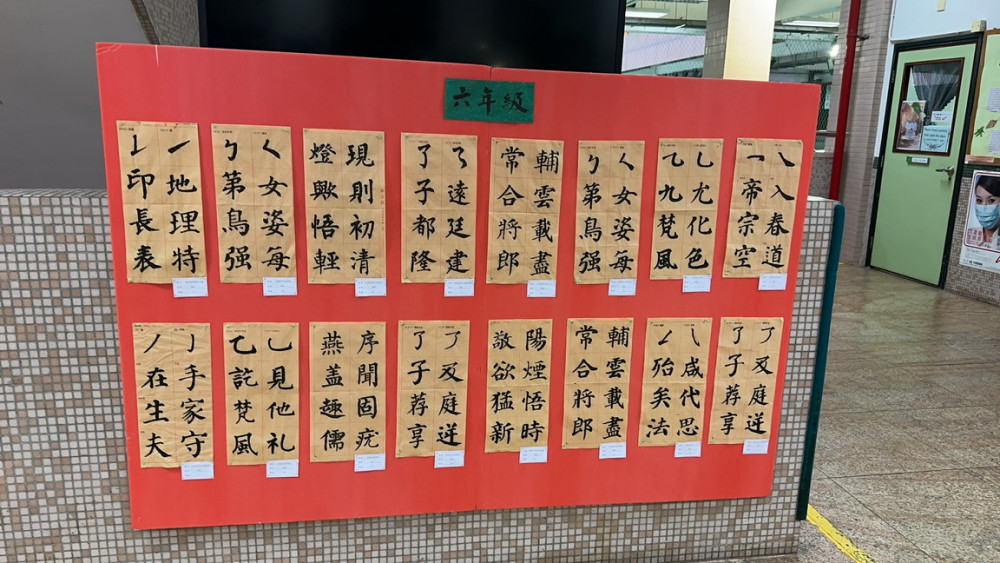 六年級
一地理特
印長表
く女姿每
ㄅ第鳥强
現則初清
燈歟悟輕
ろ遠廷建
了子都隆
輔雲載盡
常合將郎
く女姿每
ㄅ第鳥强
乚尤化色
乁九梵風
㇏入春道
乛帝宗空
亅手家守
丿在生夫
乚見他礼
乙訖梵風
序聞固疣
燕盖趣儒
㇇及庭迸
了子荐享
陽煙悟時
敬欲猛新
輔雲載盡
常合將郎
㇂咸代思
㇜殆矣法
㇇及庭迸
了子荐享